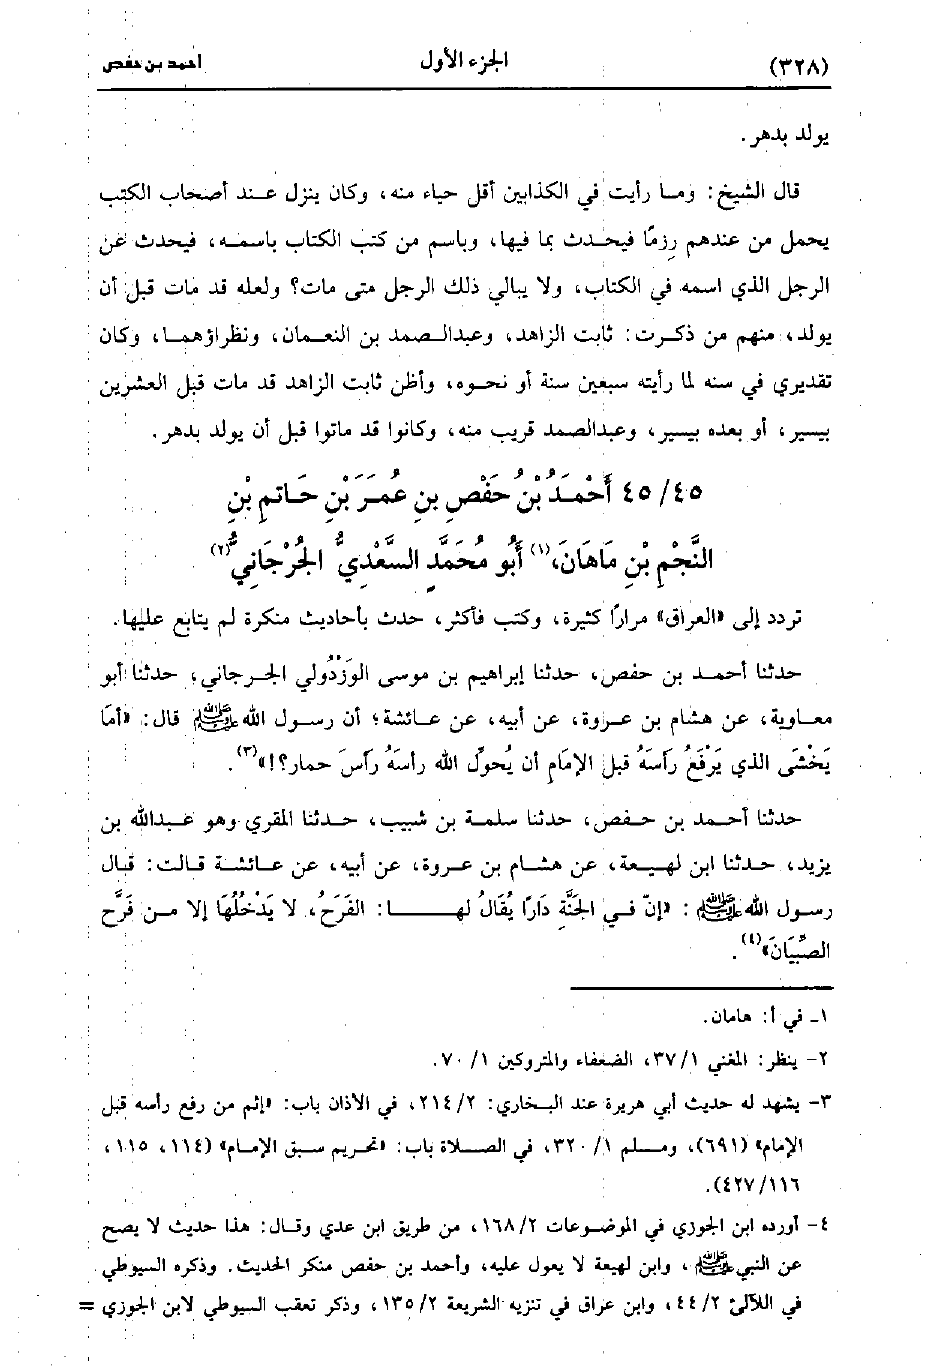 (٣٢٨) الجزء الأول أحمد بن حفص
يولد بدهر.
قال الشيخ: وما رأيت في الكذابين أقل حياء منه، وكان ينزل عند أصحاب الكتب
يحمل من عندهم رِزمًا فيحدث بما فيها، وباسم من كتب الكتاب باسمه، فيحدث عن
الرجل الذي اسمه في الكتاب، ولا يبالي ذلك الرجل متى مات؟ ولعله قد مات قبل أن
يولد، منهم من ذكرت: ثابت الزاهد، وعبدالصمد بن النعمان، ونظراؤهما، وكان
تقديري في سنه لما رأيته سبعين سنة أو نحوه، وأظن ثابت الزاهد قد مات قبل العشرين
بيسير، أو بعده بيسير، وعبدالصمد قريب منه، وكانوا قد ماتوا قبل أن يولد بدهر.
٤٥/ ٤٥ أَحْمَدُ بْنُ حَفْصِ بنِ عُمَرَ بْنِ حَاتِمِ بْنِ
النَّجْمِ بْنِ مَاهَانَ،(١) أَبُو مُحَمَّدٍ السَّعْدِيُّ الجُرْجَانِيُّ(٢)
تردد إلى «العراق» مرارًا كثيرة، وكتب فأكثر، حدث بأحاديث منكرة لم يتابع عليها.
حدثنا أحمد بن حفص، حدثنا إبراهيم بن موسى الوَزْدُولي الجرجاني، حدثنا أبو
معاوية، عن هشام بن عروة، عن أبيه، عن عائشة؛ أن رسول الله ﷺ قال: «أمَا
يَخْشَى الذي يَرْفَعُ رَأسَهُ قبل الإمَام أن يُحوِّل الله رأسهُ رَأسَ حمار؟!»(٣).
حدثنا أحمد بن حفص، حدثنا سلمة بن شبيب، حدثنا المقري وهو عبدالله بن
يزيد، حدثنا ابن لهيعة، عن هشام بن عروة، عن أبيه، عن عائشة قالت: قال
رسول الله ﷺ : «إنّ في الجَنَّةِ دَارًا يُقَالُ لها: الفَرَحُ، لا يَدْخُلُهَا إلا من فَرَّح
الصِّبْيَانَ»(٤).
١ـ في أ: هامان.
٢- ينظر: المغني ١/ ٣٧، الضعفاء والمتروكين ١/ ٧٠.
٣- يشهد له حديث أبي هريرة عند البخاري: ٢/ ٢١٤، في الأذان باب: «إثم من رفع رأسه قبل
الإمام» (٦٩١)، ومسلم ١/ ٣٢٠، في الصلاة باب: «تحريم سبق الإمام» (١١٤، ١١٥،
١١٦/ ٤٢٧).
٤- أورده ابن الجوزي في الموضوعات ٢/ ١٦٨، من طريق ابن عدي وقال: هذا حديث لا يصح
عن النبي ﷺ، وابن لهيعة لا يعول عليه، وأحمد بن حفص منكر الحديث. وذكره السيوطي
في اللآلئ ٢/ ٤٤، وابن عراق في تنزيه الشريعة ٢/ ١٣٥، وذكر تعقب السيوطي لابن الجوزي =